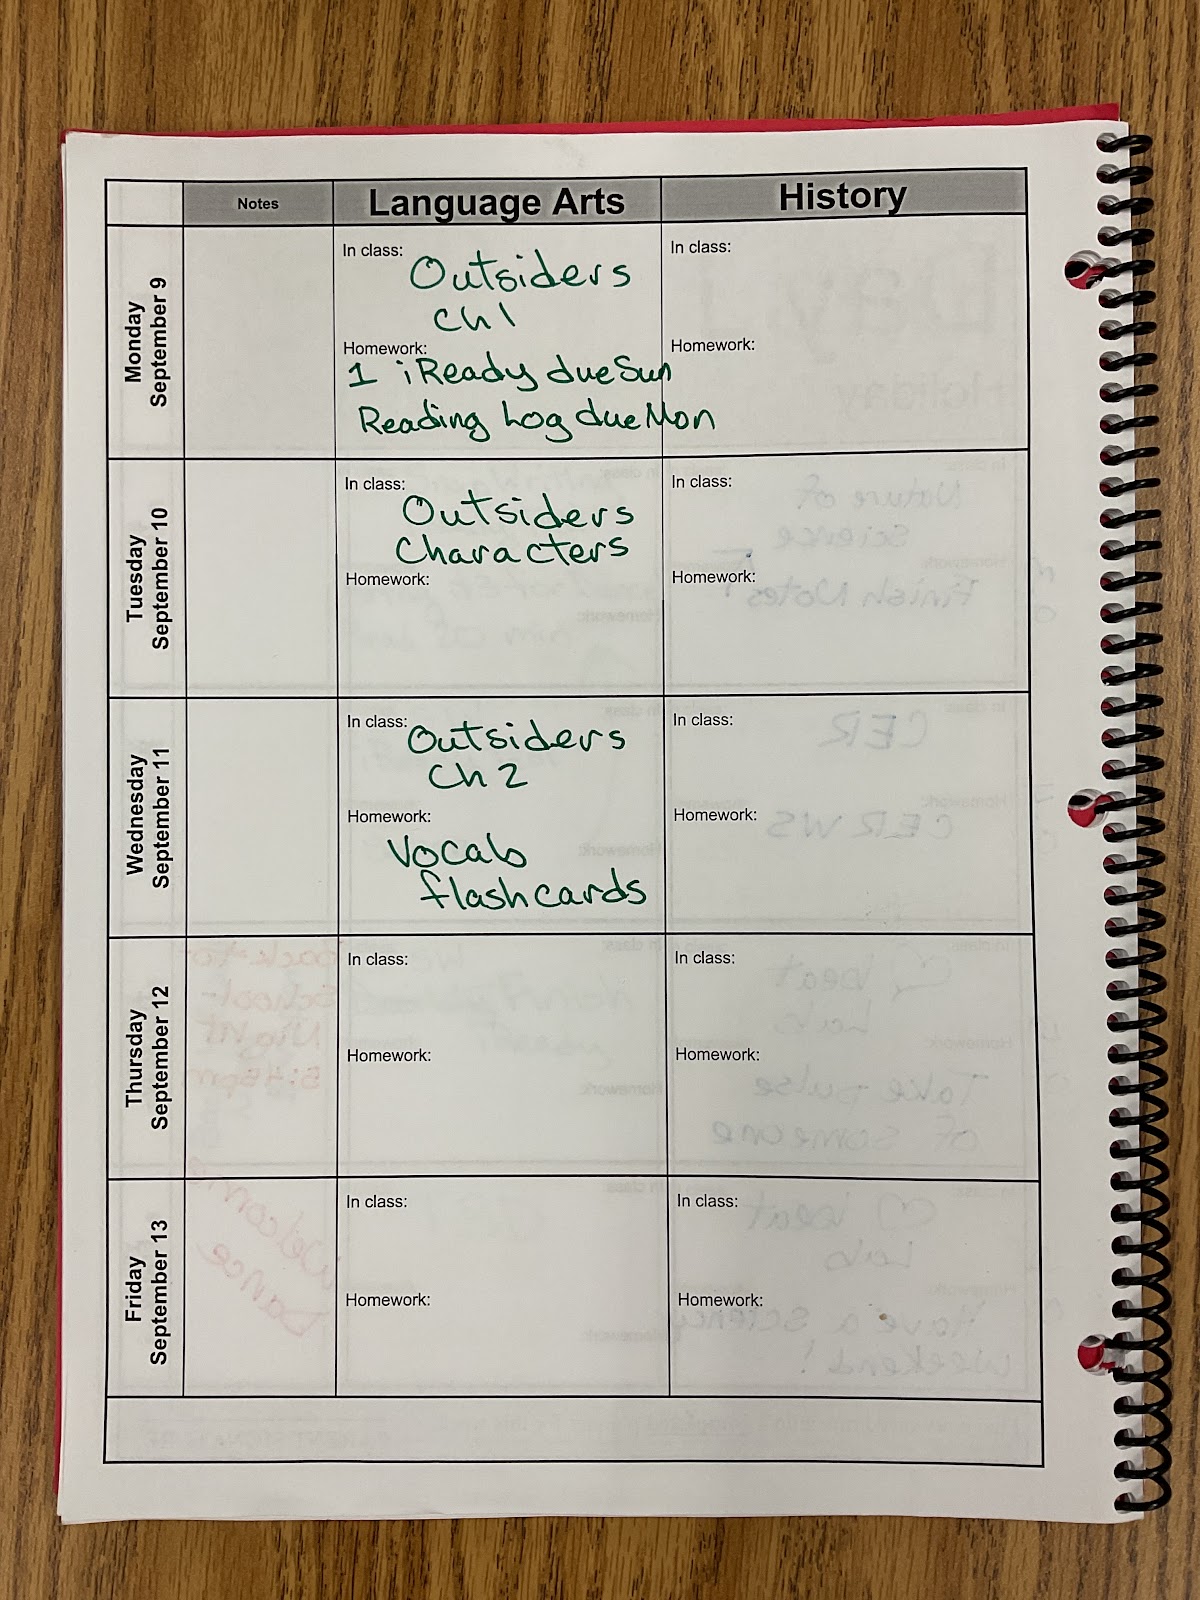 Notes
Language Arts
History
Monday
September 9
In class:
Outsiders
Ch 1
Homework:
1 iReady due Sun
Reading Log due Mon
In class:
Homework:
Tuesday
September 10
In class:
Outsiders
Characters
Homework:
In class:
Homework:
Wednesday
September 11
In class:
Outsiders
Ch 2
Homework:
Vocab
flashcards
In class:
Homework:
Thursday
September 12
In class:
Homework:
In class:
Homework:
Friday
September 13
In class:
Homework:
In class:
Homework: